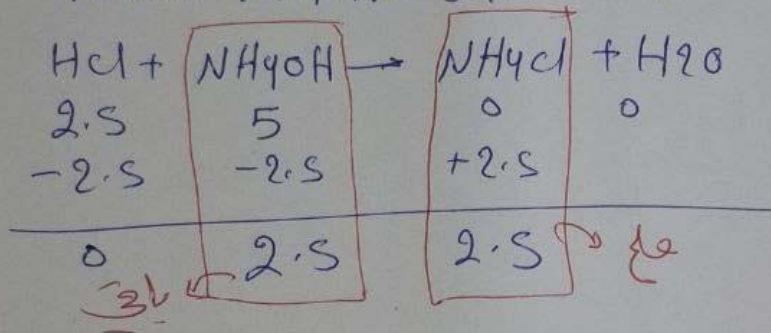 HCl + NH4OH → NH4Cl + H2O
2.5 5 0 0
-2.5 -2.5 +2.5
0 2.5 2.5